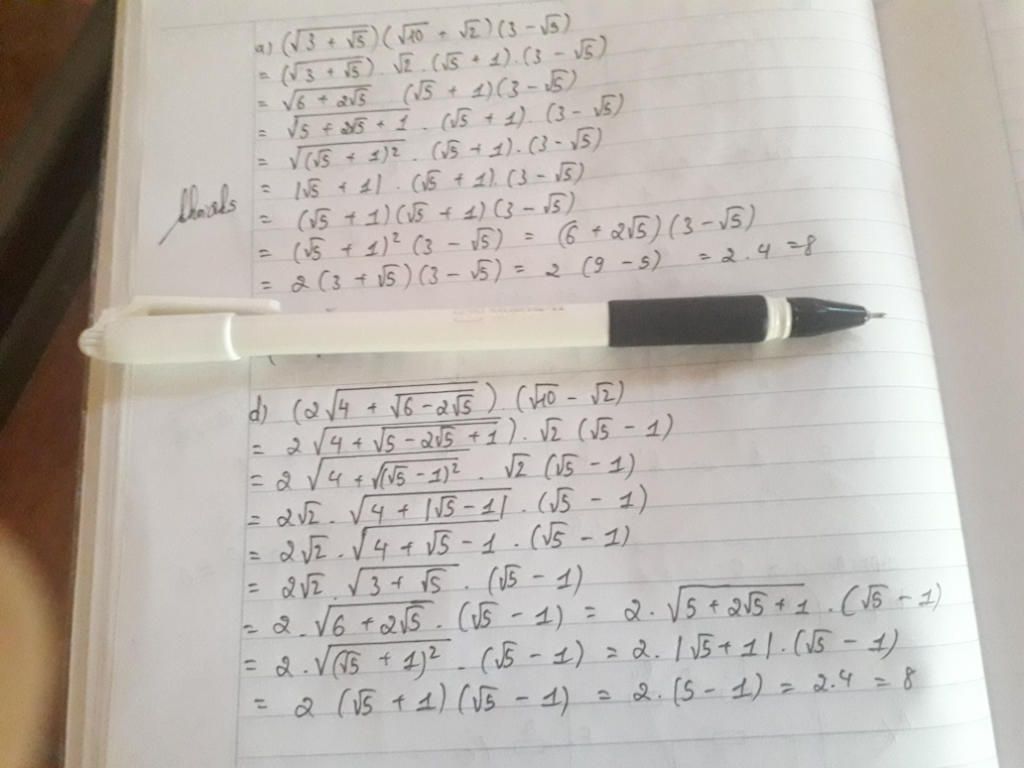 a) (√(3 + √5)) (√10 + √2) (3 - √5)
= (√(3 + √5)) . √2 . (√5 + 1) . (3 - √5)
= √(6 + 2√5) (√5 + 1) (3 - √5)
= √(5 + 2√5 + 1) . (√5 + 1) . (3 - √5)
= √((√5 + 1)²) . (√5 + 1) . (3 - √5)
= |√5 + 1| . (√5 + 1) . (3 - √5)
= (√5 + 1) (√5 + 1) (3 - √5)
= (√5 + 1)² (3 - √5) = (6 + 2√5) (3 - √5)
= 2 (3 + √5) (3 - √5) = 2 (9 - 5) = 2 . 4 = 8
d) (2√(4 + √(6 - 2√5))) (√10 - √2)
= 2√(4 + √(5 - 2√5 + 1)) ) . √2 (√5 - 1)
= 2√(4 + √((√5 - 1)²)) . √2 (√5 - 1)
= 2√2 . √(4 + |√5 - 1|) . (√5 - 1)
= 2√2 . √(4 + √5 - 1) . (√5 - 1)
= 2√2 . √(3 + √5) . (√5 - 1)
= 2 . √(6 + 2√5) . (√5 - 1) = 2 . √(5 + 2√5 + 1) . (√5 - 1)
= 2 . √((√5 + 1)²) . (√5 - 1) = 2 . |√5 + 1| . (√5 - 1)
= 2 (√5 + 1) (√5 - 1) = 2 . (5 - 1) = 2.4 = 8